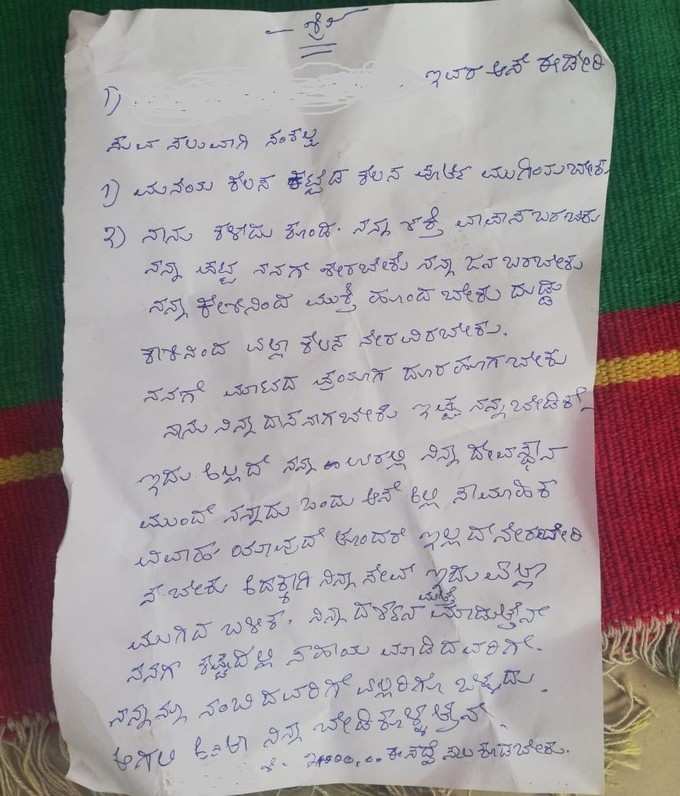 - ಶ್ರೀ -
1) ಇವರ ಆಸೆ ಈಡೇರಿ
ಸುವ ಸಲುವಾಗಿ ಸಂಕಲ್ಪ
1) ಮನೆಯ ಕೆಲಸ ಕಟ್ಟಡ ಕೆಲಸ ಪೂರ್ತಿ ಮುಗಿಯಬೇಕು
2) ನಾನು ಕಳೆದು ಕೊಂಡ. ನನ್ನ ಶಕ್ತಿ ವಾಪಾಸ ಬರಬೇಕು
ನನ್ನ ಪಟ್ಟ ನನಗೆ ಸೇರಬೇಕು ನನ್ನ ಜನ ಬರಬೇಕು
ನನ್ನ ಕೇಸ್‌ನಿಂದ ಮುಕ್ತಿ ಹೊಂದ ಬೇಕು ದುಡ್ಡು
ಎಲ್ಲಾ ಕೆಲಸ ನೇರವೆರಬೇಕು.
ನನಗೆ ಮಾಟದ ಪ್ರಯೋಗ ದೂರ ಹೋಗಬೇಕು
ನಾನು ನಿನ್ನ ದಾಸನಾಗಬೇಕು ಇಷ್ಟ ನನ್ನ ಬೇಡಿಕೆ
ಇದು ಅಲ್ಲದೆ ನನ್ನ ಊರಲ್ಲಿ ನಿನ್ನ ದೇವಸ್ಥಾನ
ಮುಂದೆ ನನ್ನದು ಒಂದು ಆಸೆ ಸಾಮೂಹಿಕ
ವಿವಾಹ ಯಾವುದೆ ತೊಂದರೆ ಇಲ್ಲದೆ ನೇರವೇರಿ
ಸಬೇಕು ಅದಕ್ಕಾಗಿ ನಿನ್ನ ಸೇವೆ ಇದು ಎಲ್ಲಾ
ಮುಗಿದ ಬಳಿಕ. ನಿನ್ನ ದರ್ಶನ ಮತ್ತೆ ಮಾಡುತ್ತೇನೆ
ನನಗೆ ಕಷ್ಟದಲ್ಲಿ ಸಹಾಯ ಮಾಡಿದವರಿಗೆ.
ನನ್ನನ್ನು ನಂಬಿದವರಿಗೆ ಎಲ್ಲರಿಗೂ ಒಳ್ಳೆಯದು.
ಆಗಲಿ ನಿನ್ನ ಬೇಡಿಕೊಳ್ಳುತ್ತೇನೆ.
ಸಾಲ ಕೊಡಬೇಕು.